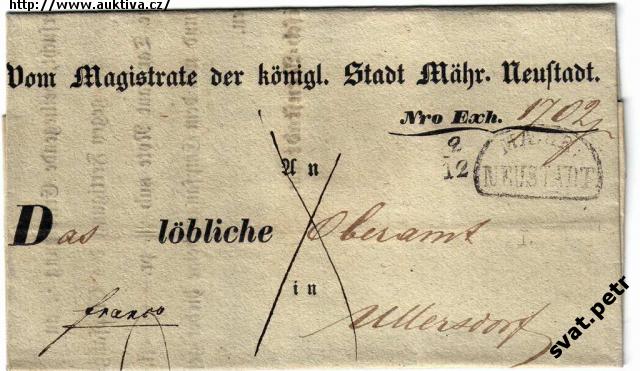 http://www.auktiva.cz/
Vom Magistrate der königl. Stadt Mähr. Neustadt.
Nro Exh. 1702
2/12
MÄHR:
NEUSTADT
An
Das löbliche Oberamt
in
franco
Ullersdorf
svat.petr